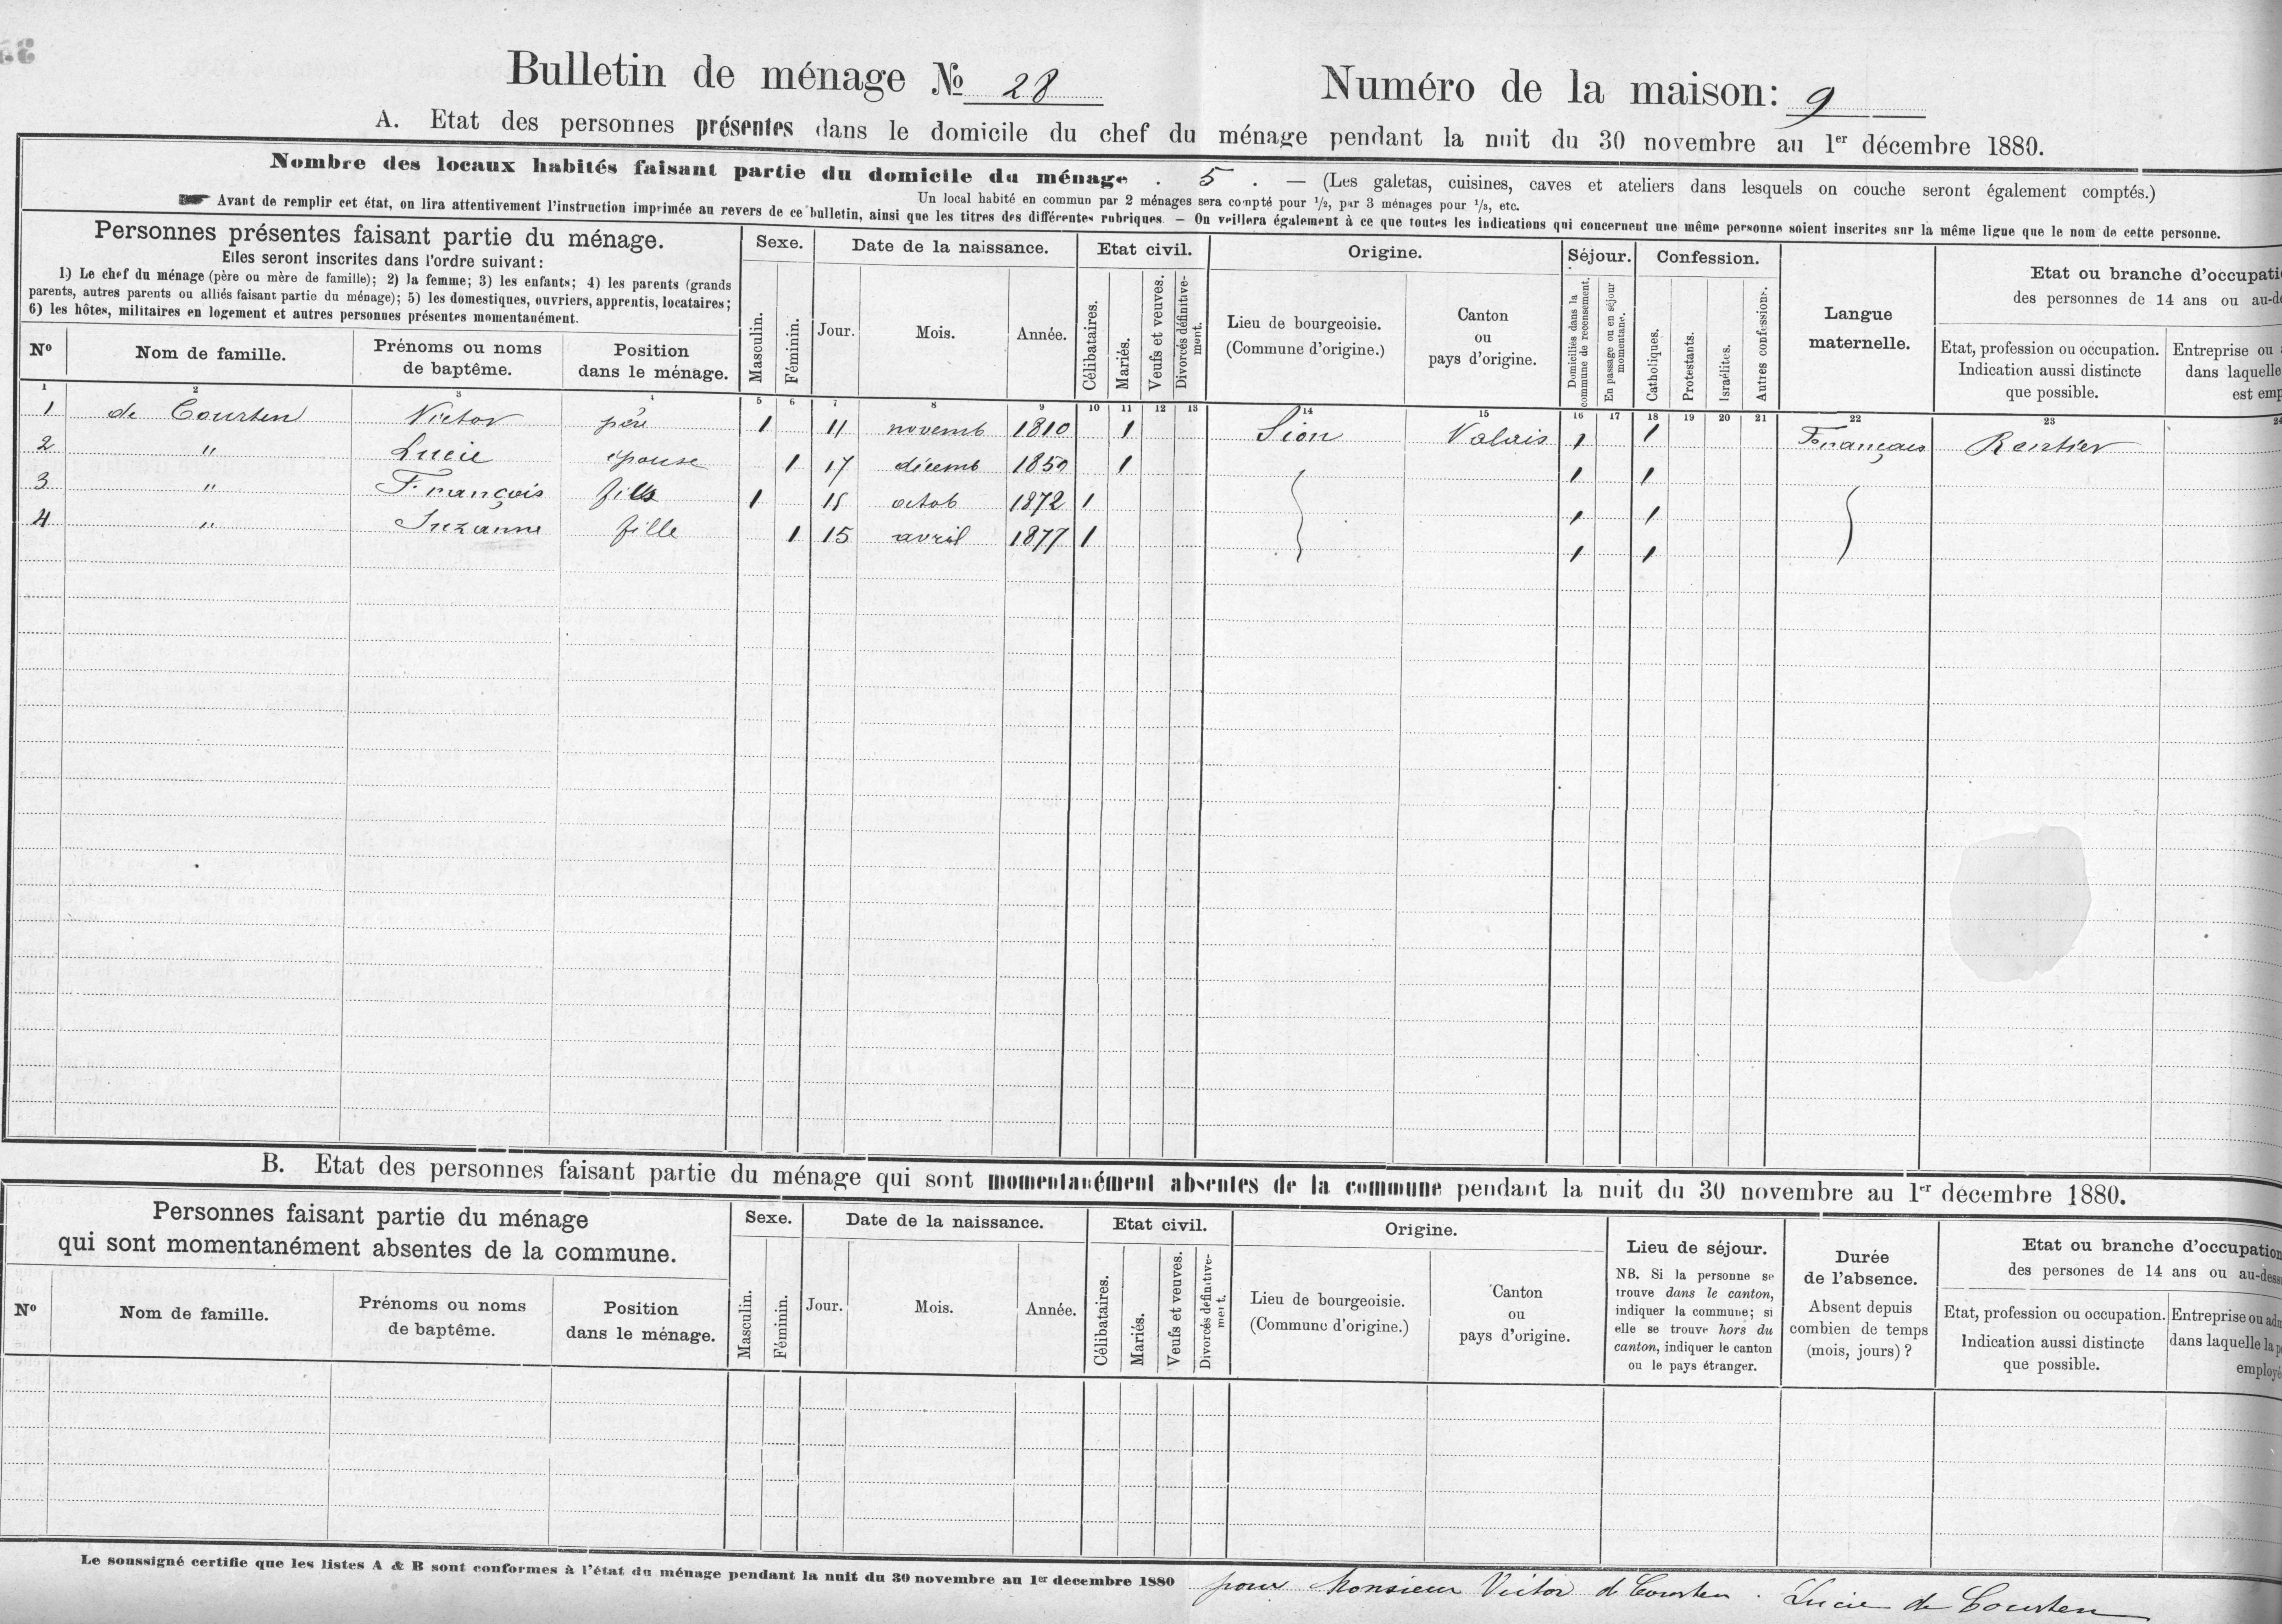 Bulletin de ménage № 28 Numéro de la maison: 9
A. Etat des personnes présentes dans le domicile du chef du ménage pendant la nuit du 30 novembre au 1er décembre 1880.
Nombre des locaux habités faisant partie du domicile du ménage . 5 . — (Les galetas, cuisines, caves et ateliers dans lesquels on couche seront également comptés.)
Un local habité en commun par 2 ménages sera compté pour 1/2, par 3 ménages pour 1/3, etc.
Avant de remplir cet état, on lira attentivement l'instruction imprimée au revers de ce bulletin, ainsi que les titres des différentes rubriques. — On veillera également à ce que toutes les indications qui concernent une même personne soient inscrites sur la même ligne que le nom de cette personne.
Personnes présentes faisant partie du ménage.
Elles seront inscrites dans l'ordre suivant:
1) Le chef du ménage (père ou mère de famille); 2) la femme; 3) les enfants; 4) les parents (grands
parents, autres parents ou alliés faisant partie du ménage); 5) les domestiques, ouvriers, apprentis, locataires;
6) les hôtes, militaires en logement et autres personnes présentes momentanément.
Nº
Nom de famille.
Prénoms ou noms
de baptême.
Position
dans le ménage.
Sexe.
Masculin.
Féminin.
Date de la naissance.
Jour.
Mois.
Année.
Etat civil.
Célibataires.
Mariés.
Veufs et veuves.
Divorcés définitive-
ment.
Origine.
Lieu de bourgeoisie.
(Commune d'origine.)
Canton
ou
pays d'origine.
Séjour.
Domiciliés dans la
commune de recensement.
En passage ou en séjour
momentané.
Confession.
Catholiques.
Protestants.
Israélites.
Autres confessions.
Langue
maternelle.
Etat ou branche d'occupati
des personnes de 14 ans ou au-d
Etat, profession ou occupation.
Indication aussi distincte
que possible.
Entreprise ou
dans laquelle
est emp
1 2 3 4 5 6 7 8 9 10 11 12 13 14 15 16 17 18 19 20 21 22 23 24
1 de Courten Victor père 1 11 novemb 1810 1 Sion Valais 1 1 Français Rentier
2 " Lucie epouse 1 17 décemb 1850 1 1 1
3 " François fils 1 18 octob 1872 1 1 1
4 " Suzanne fille 1 15 avril 1877 1 1 1
B. Etat des personnes faisant partie du ménage qui sont momentanément absentes de la commune pendant la nuit du 30 novembre au 1er décembre 1880.
Personnes faisant partie du ménage
qui sont momentanément absentes de la commune.
Nº
Nom de famille.
Prénoms ou noms
de baptême.
Position
dans le ménage.
Sexe.
Masculin.
Féminin.
Date de la naissance.
Jour.
Mois.
Année.
Etat civil.
Célibataires.
Mariés.
Veufs et veuves.
Divorcés définitive-
ment.
Origine.
Lieu de bourgeoisie.
(Commune d'origine.)
Canton
ou
pays d'origine.
Lieu de séjour.
NB. Si la personne se
trouve dans le canton,
indiquer la commune; si
elle se trouve hors du
canton, indiquer le canton
ou le pays étranger.
Durée
de l'absence.
Absent depuis
combien de temps
(mois, jours)?
Etat ou branche d'occupation
des persones de 14 ans ou au-dess
Etat, profession ou occupation.
Indication aussi distincte
que possible.
Entreprise ou adm
dans laquelle la p
employé
Le soussigné certifie que les listes A & B sont conformes à l'état du ménage pendant la nuit du 30 novembre au 1er decembre 1880 pour Monsieur Victor de Courten . Lucie de Courten